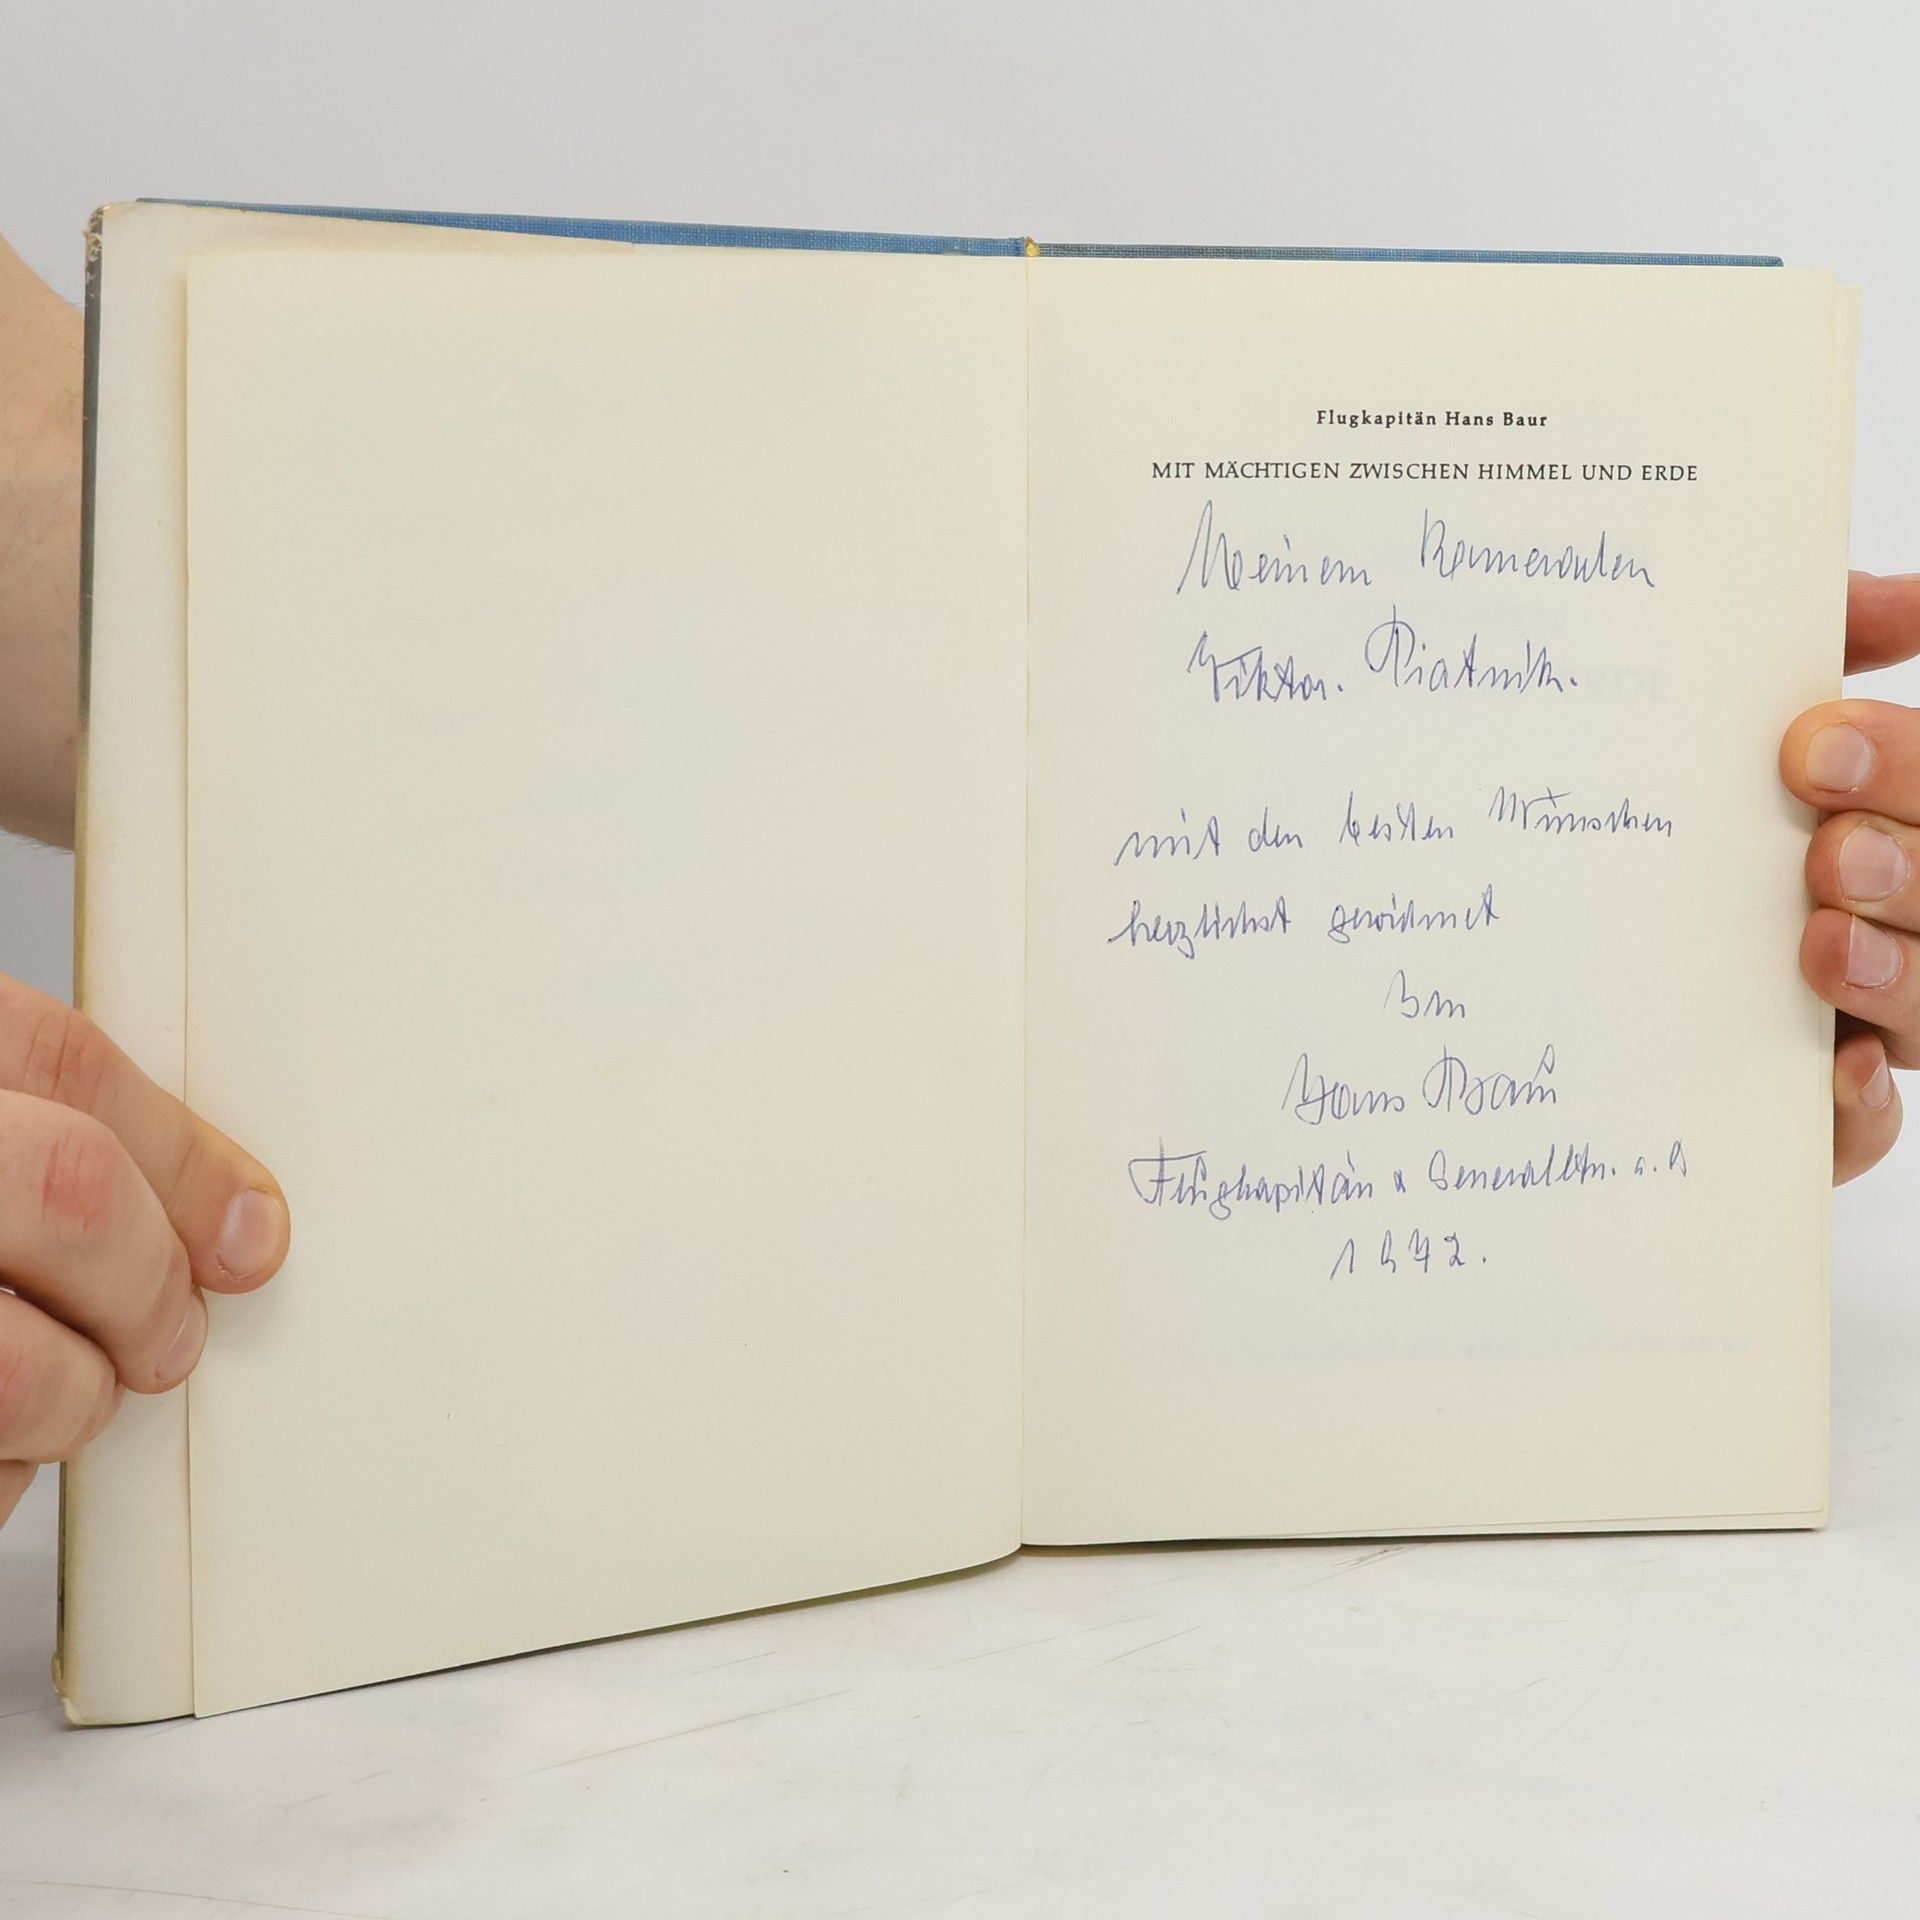 Flugkapitän Hans Baur
MIT MÄCHTIGEN ZWISCHEN HIMMEL UND ERDE
Meinem Kameraden
Viktor. Piatnik.
mit den besten Wünschen
herzlichst gewidmet
Ihr
Hans Baur
Flugkapitän u Generalltn. a. D
1972.